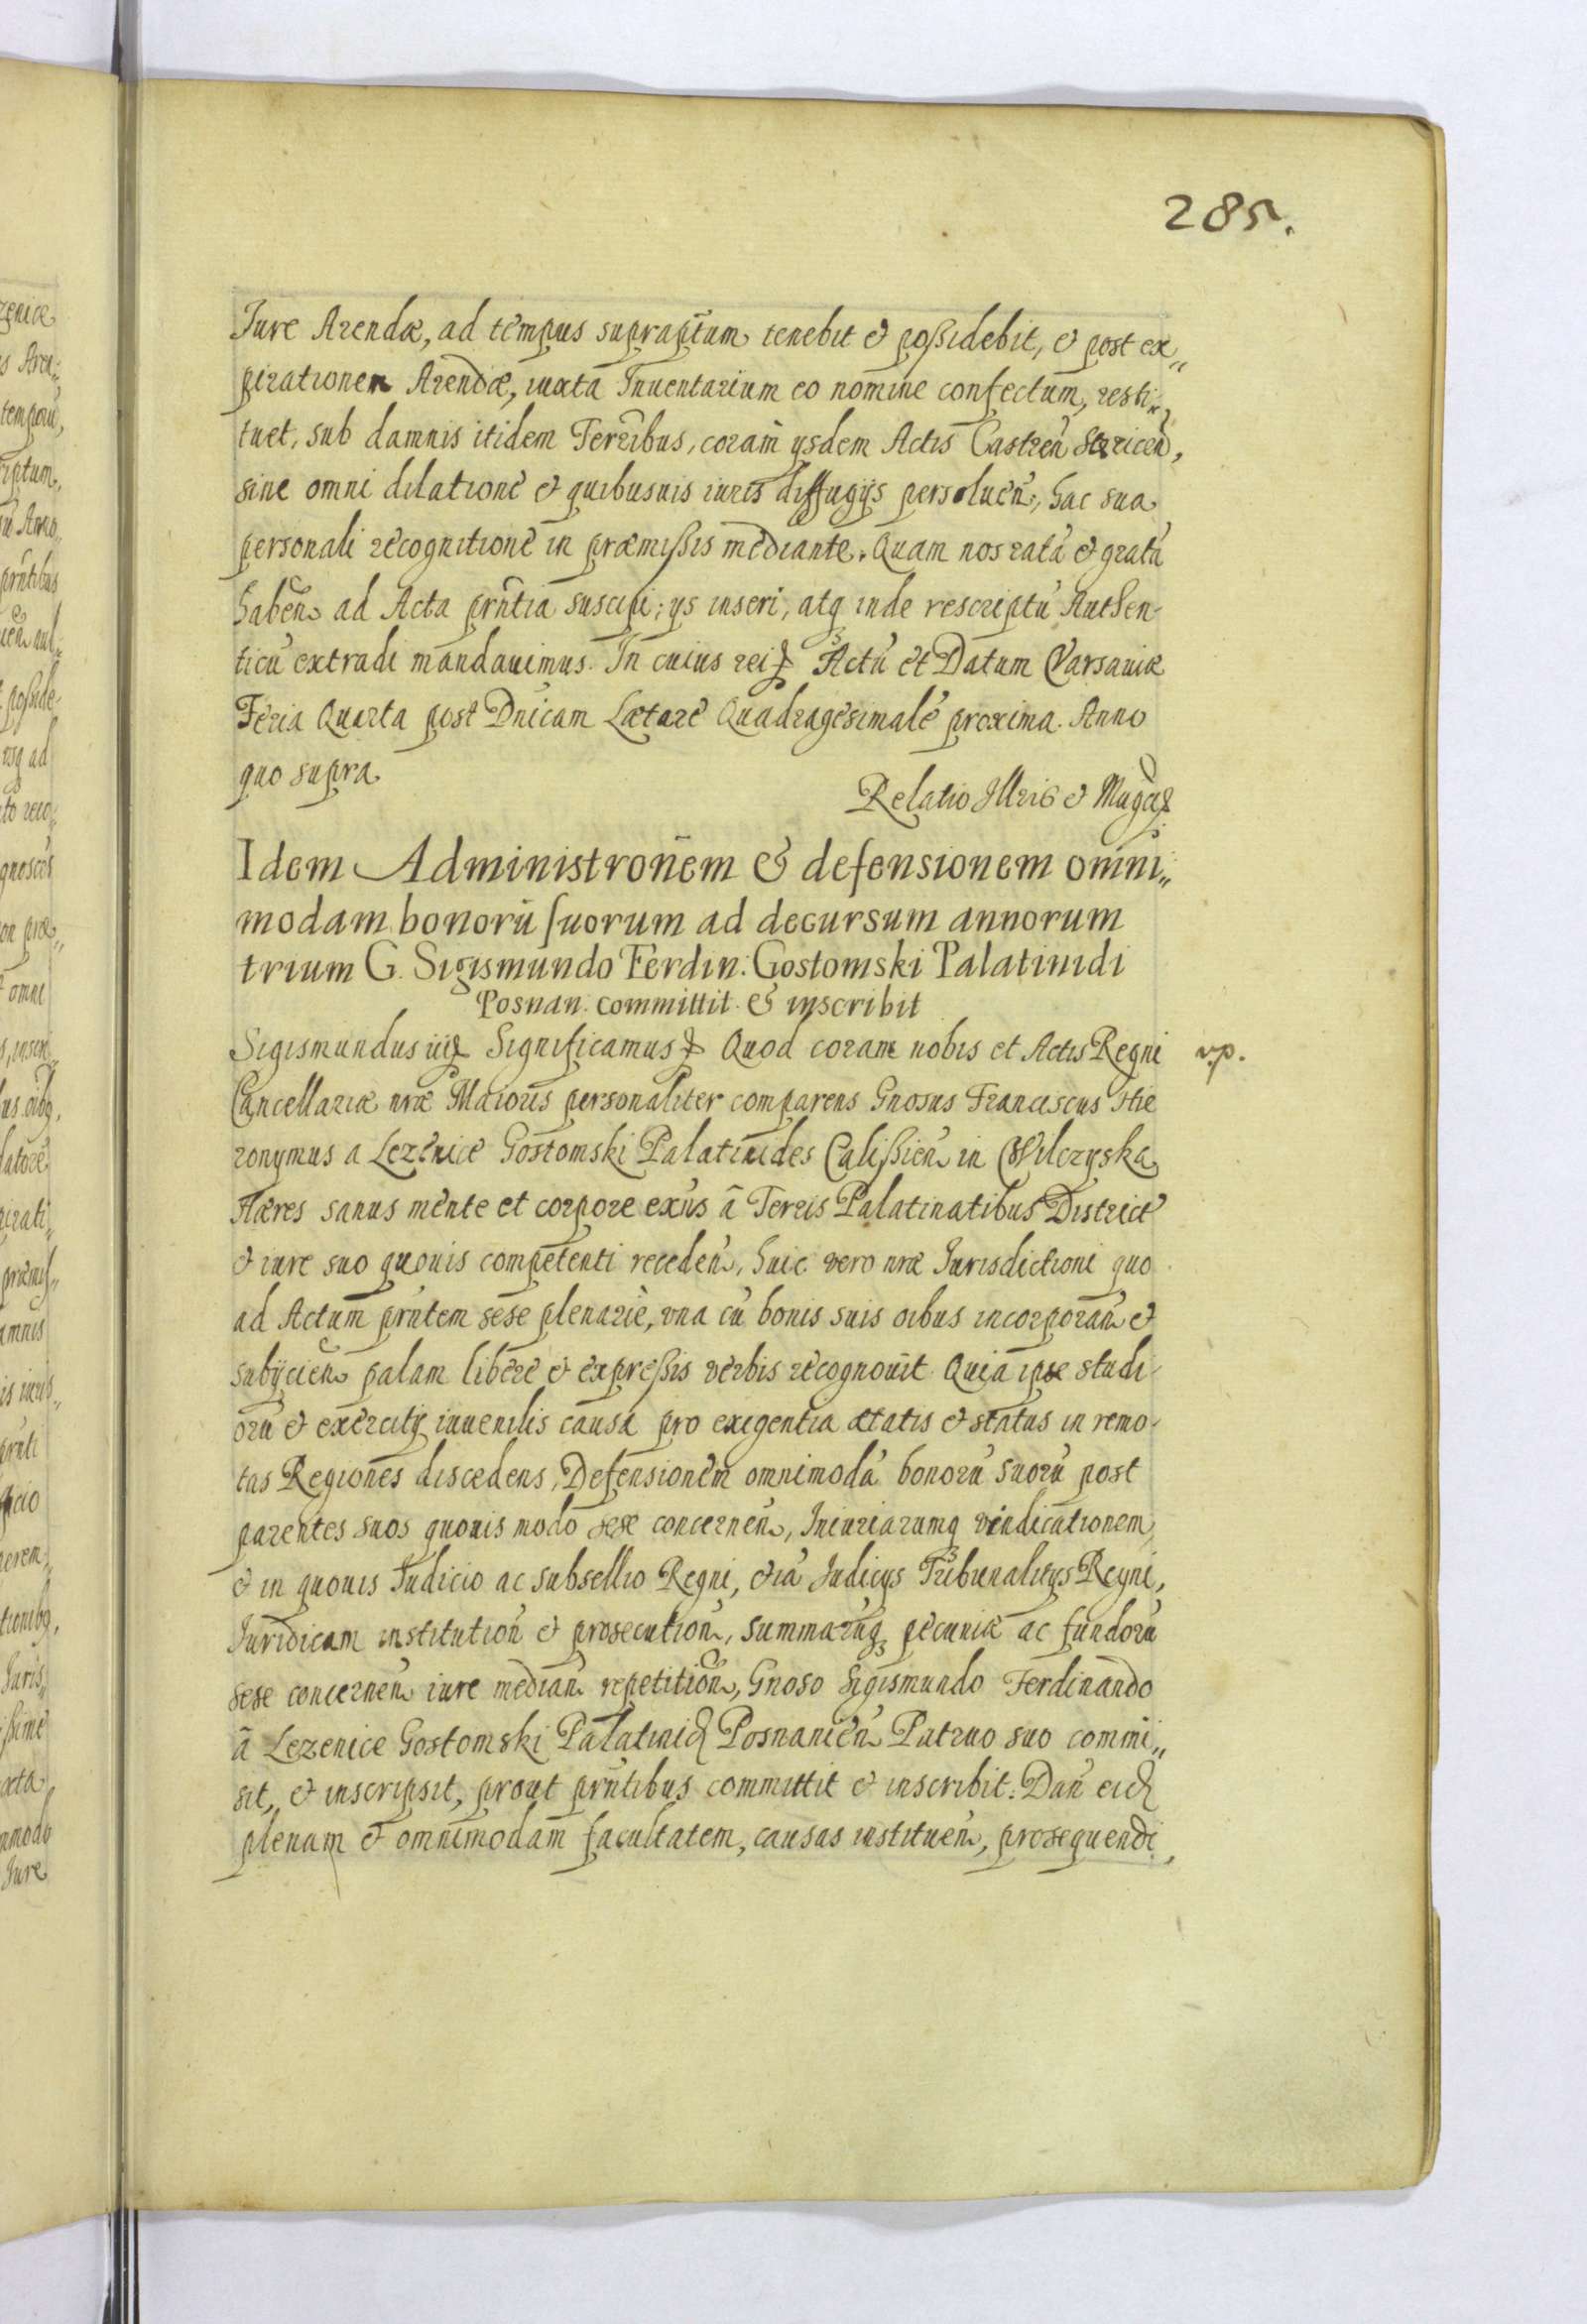 285.
Jure Arendæ, ad tempus supraptum tenebit & poßidebit, & post ex„
pirationem Arendæ, iuxta Inuentarium eo nomine confectum, resti„
tuet, sub damnis itidem Terribus, coram ysdem Actis Castren Siricen,
sine omni dilatione & quibusuis iuris diffugijs persoluen:, hac sua
personali recognitione in præmißis mediante. Quam nos ratā & gratā
haben ad Acta prntia suscipi; ys inseri, atq inde rescriptū Authen-
ticū extradi mandauimus. In cuius rei & Actū et Datum Varsauiæ
Feria Quarta post Dnicam Lætare Quadragesimalē proxima. Anno
quo supra.
Relatio Illris & Magci &
Idem Administronēm & defensionem omni„
modam bonorū suorum ad decursum annorum
trium G. Sigismundo Ferdin: Gostomski Palatinidi
Posnan: committit & inscribit
Sigismundus iij & Significamus & Quod coram nobis et Actis Regni
vp.
Cancellariæ nræ Maioris personaliter comparens Gnosus Franciscus Hie
ronymus a Lezenice Gostomski Palatinides Calißien in Wilczyska
Hæres sanus mente et corpore exūs ā Terris Palatinatibus District
& iure suo quouis competenti receden, huic vero nræ Jurisdictioni quo
ad Actum prntem sese plenariè, vna cū bonis suis oibus incorporan &
subijcien palam libere & expreßis verbis recognouit. Quia ipse studi-
orū & exercitij iuuenilis causa pro exigentia ætatis & status in remo-
tas Regiones discedens, Defensionēm omnimodā bonorū suorū post
parentes suos quouis modo sese concernen, Iniuriarumq vindicationem,
& in quouis Judicio ac subsellio Regni, etiā Judicijs Tribunalitijs Regni,
Juridicam institution & prosecution, summarūq pecuniæ ac fundorū
sese concernen iure median repetition, Gnoso Sigismundo Ferdinando
ā Lezenice Gostomski Palatinid Posnanien Patruo suo commi„
sit, & inscripsit, prout prntibus committit & inscribit. Dan eid
plenam & omnimodam facultatem, causas instituen, prosequendi,